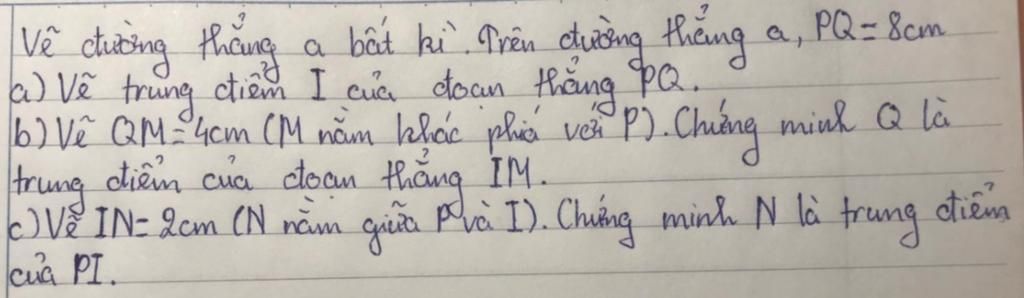 Vẽ đường thẳng a bất kì. Trên đường thẳng a, PQ = 8cm
a) Vẽ trung điểm I của đoạn thẳng PQ.
b) Vẽ QM = 4cm (M nằm khác phía với P). Chứng minh Q là
trung điểm của đoạn thẳng IM.
c) Vẽ IN = 2cm (N nằm giữa P và I). Chứng minh N là trung điểm
của PI.